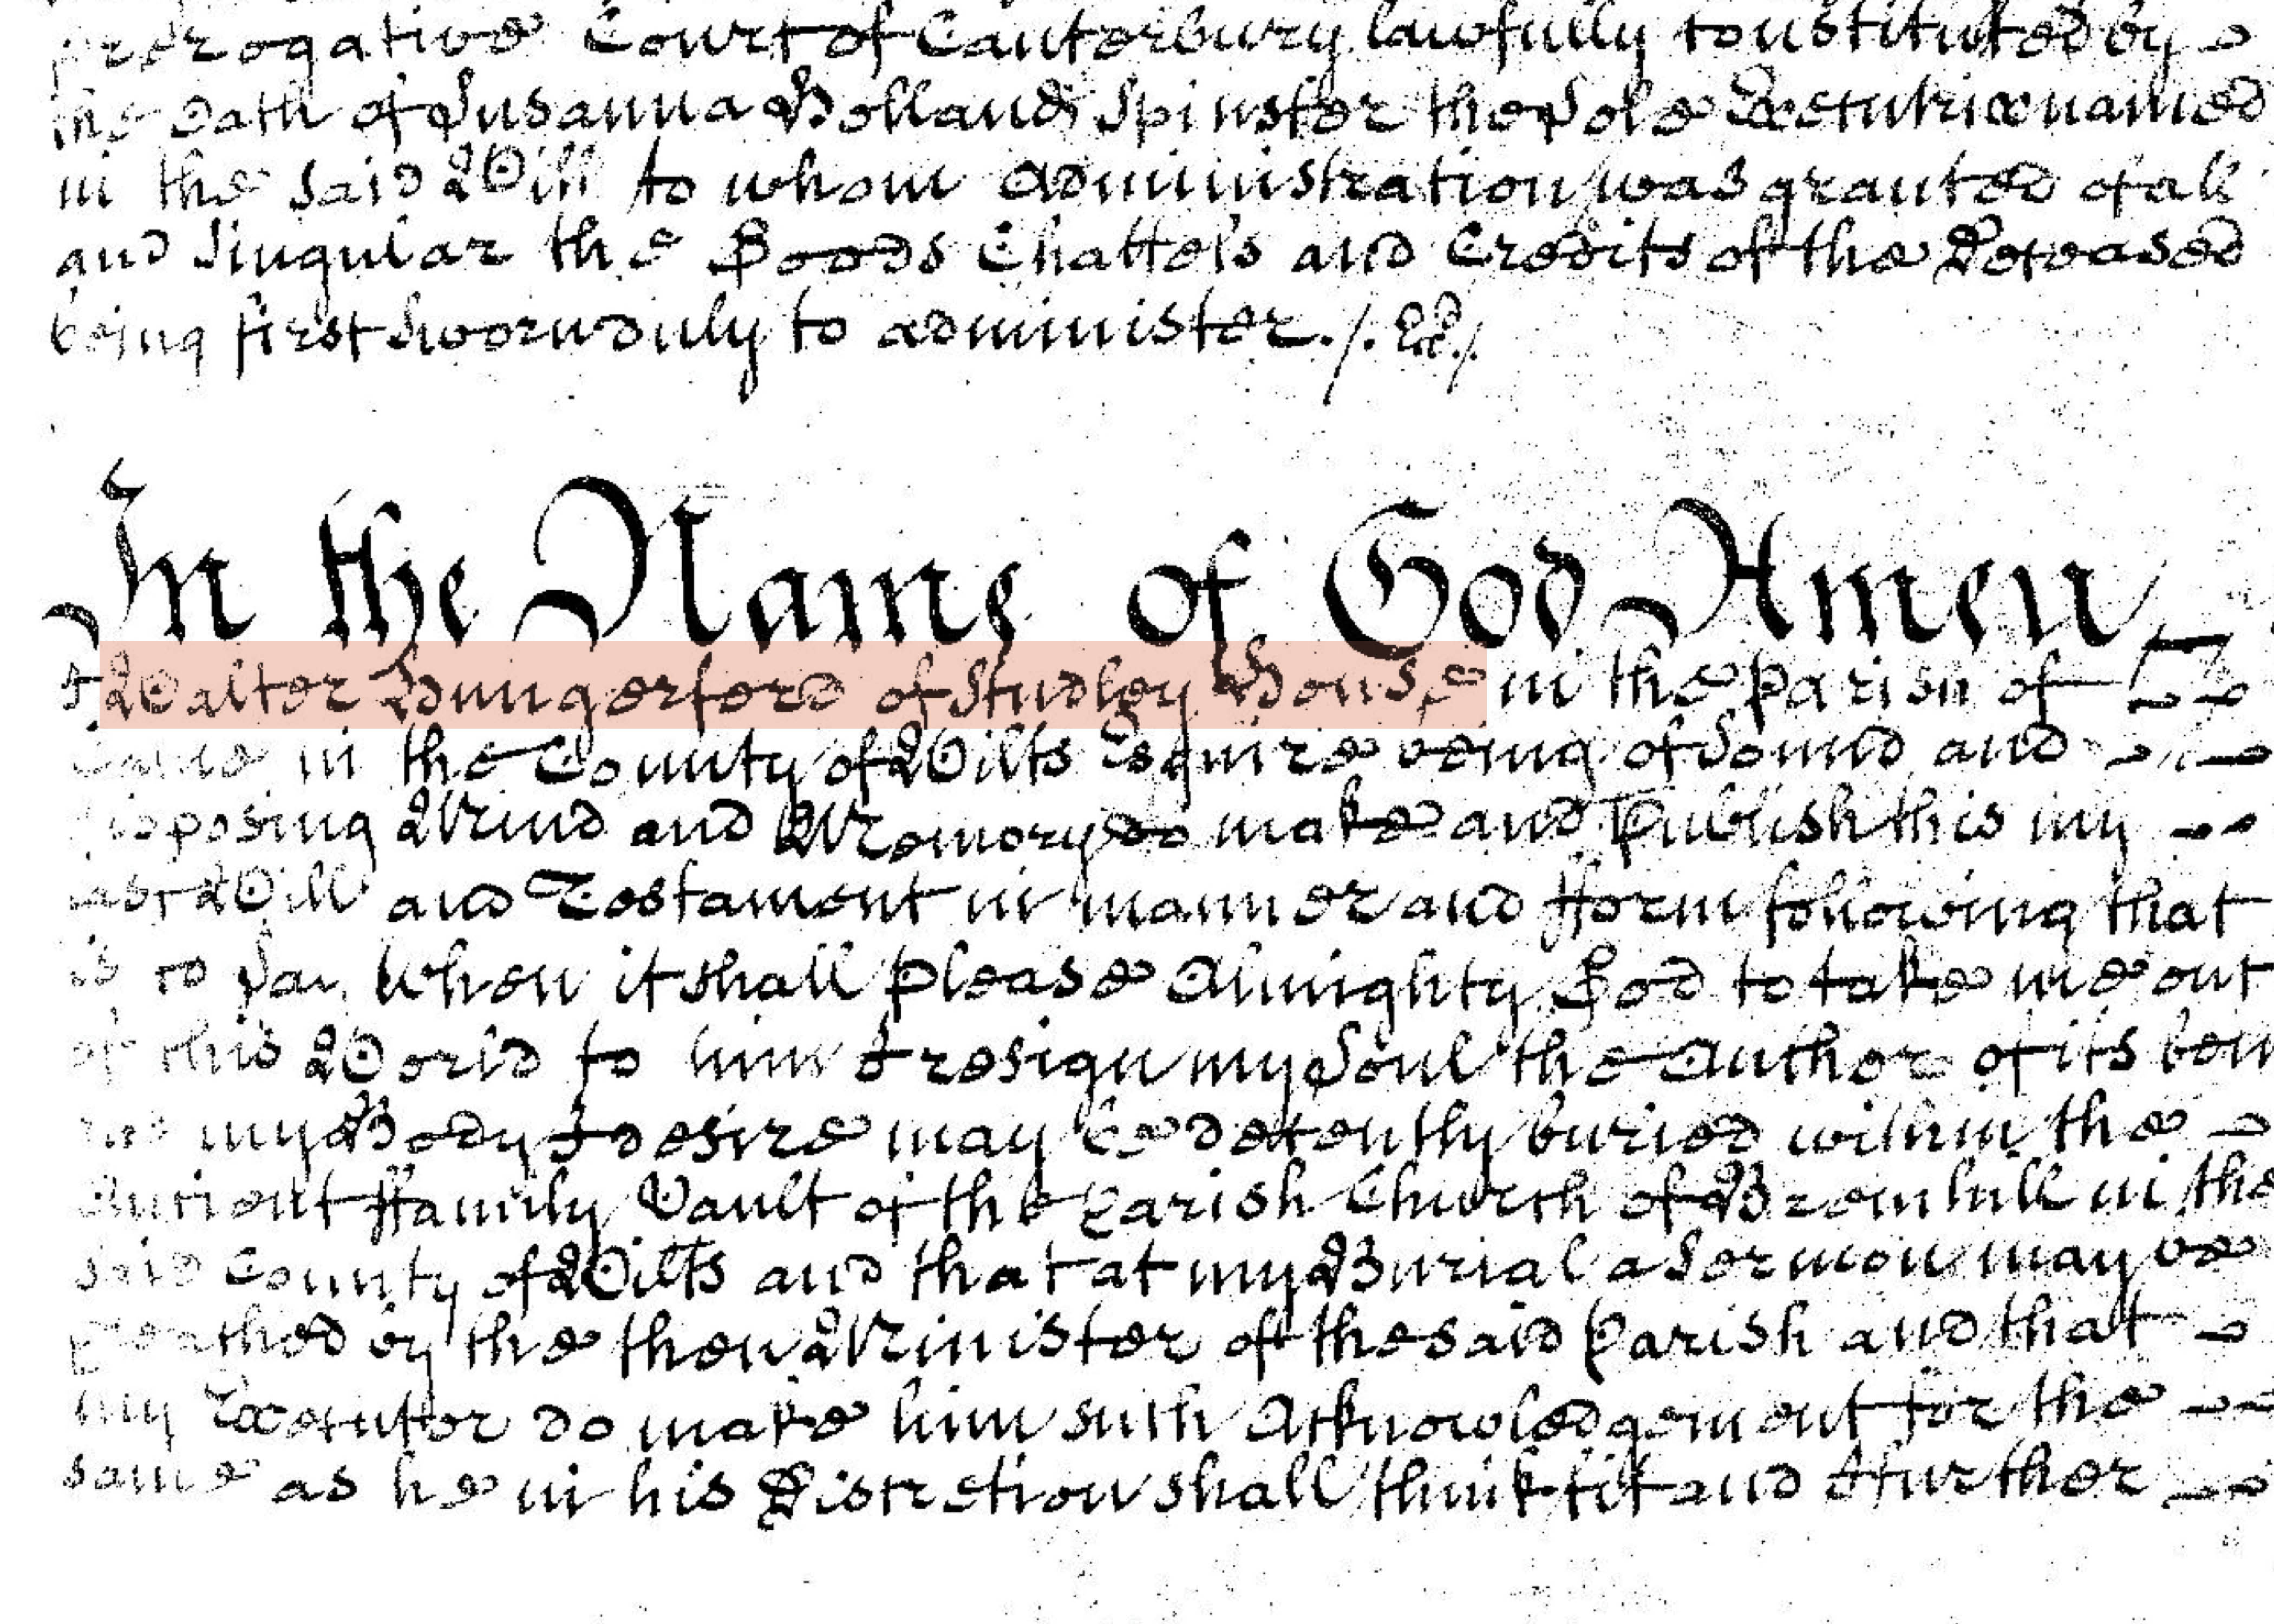 prerogative Court of Canterbury lawfully constituted by
the Oath of Susanna Holland Spinster the Sole Executrix named
in the said Will to whom administration was granted of all
and Singular the Goods Chattels and Credits of the Deceased
being first sworn duly to administer./.
In the Name of God Amen
I Walter Hungerford of Studley House in the Parish of
in the County of Wilts Esquire being of Sound and
disposing Mind and Memory do make and Publish this my
last Will and Testament in manner and fform following that
is to say When it shall please Almighty God to take me out
of this World to him I resign my Soul the Author of its
my Body I desire may be decently buried within the
Antient ffamily Vault of the Parish Church of Bremhill in the
said County of Wilts and that at my Burial a Sermon may be
preached by the then Minister of the said Parish and that
my Executor do make him such Acknowledgement for the
same as he in his Discretion shall think fit and ffurther